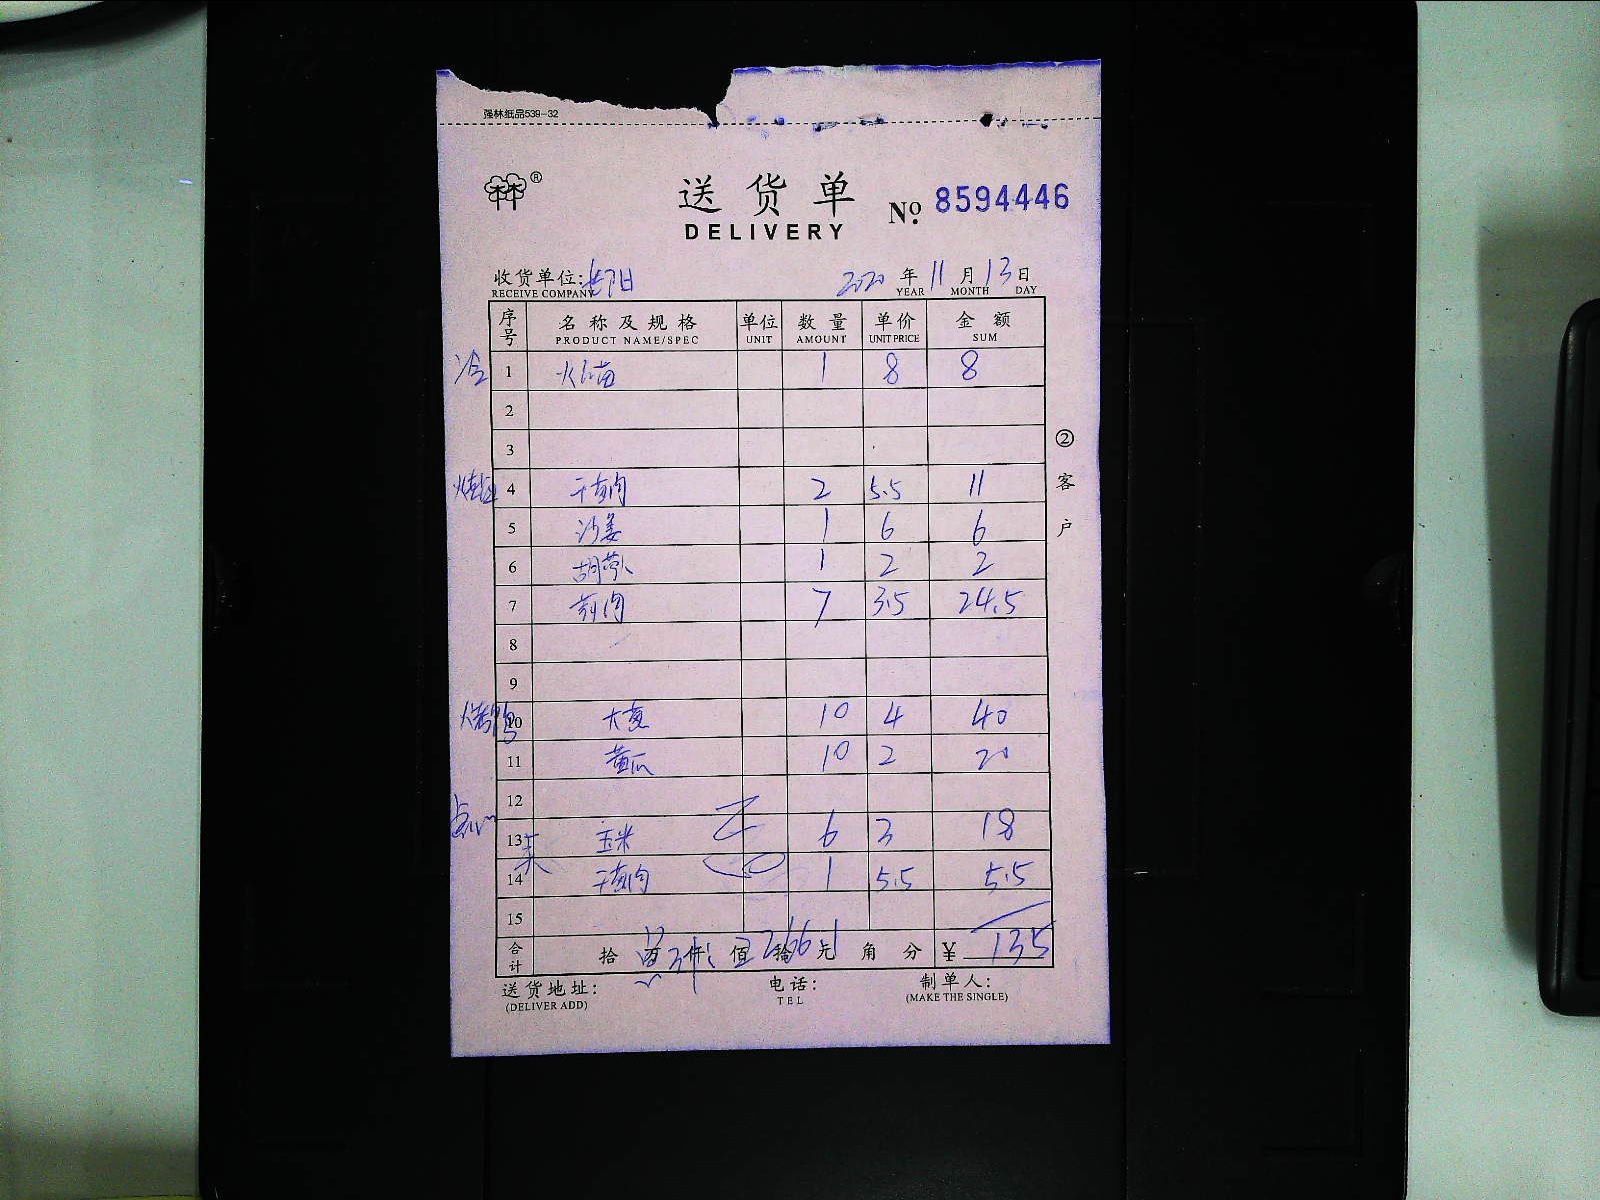 强林纸品539-32
送货单
№ 8594446
DELIVERY
收货单位: 2020 年 11 月 13 日
RECEIVE COMPANY YEAR MONTH DAY
序号 名称及规格 单位 数量 单价 金额
PRODUCT NAME/SPEC UNIT AMOUNT UNIT PRICE SUM
冷 1 苗 1 8 8
2
3
② 客户
4 干葱肉 2 5.5 11
5 沙姜 1 6 6
6 胡萝卜 1 2 2
7 肉 7 3.5 24.5
8
9
10 大葱 10 4 40
11 黄瓜 10 2 20
12
点心
13 玉米 6 3 18
14 干葱肉 1 5.5 5.5
15
合计 拾 万 仟 佰 拾 元 角 分 ¥ 135
送货地址: 电话: 制单人:
(DELIVER ADD) TEL (MAKE THE SINGLE)